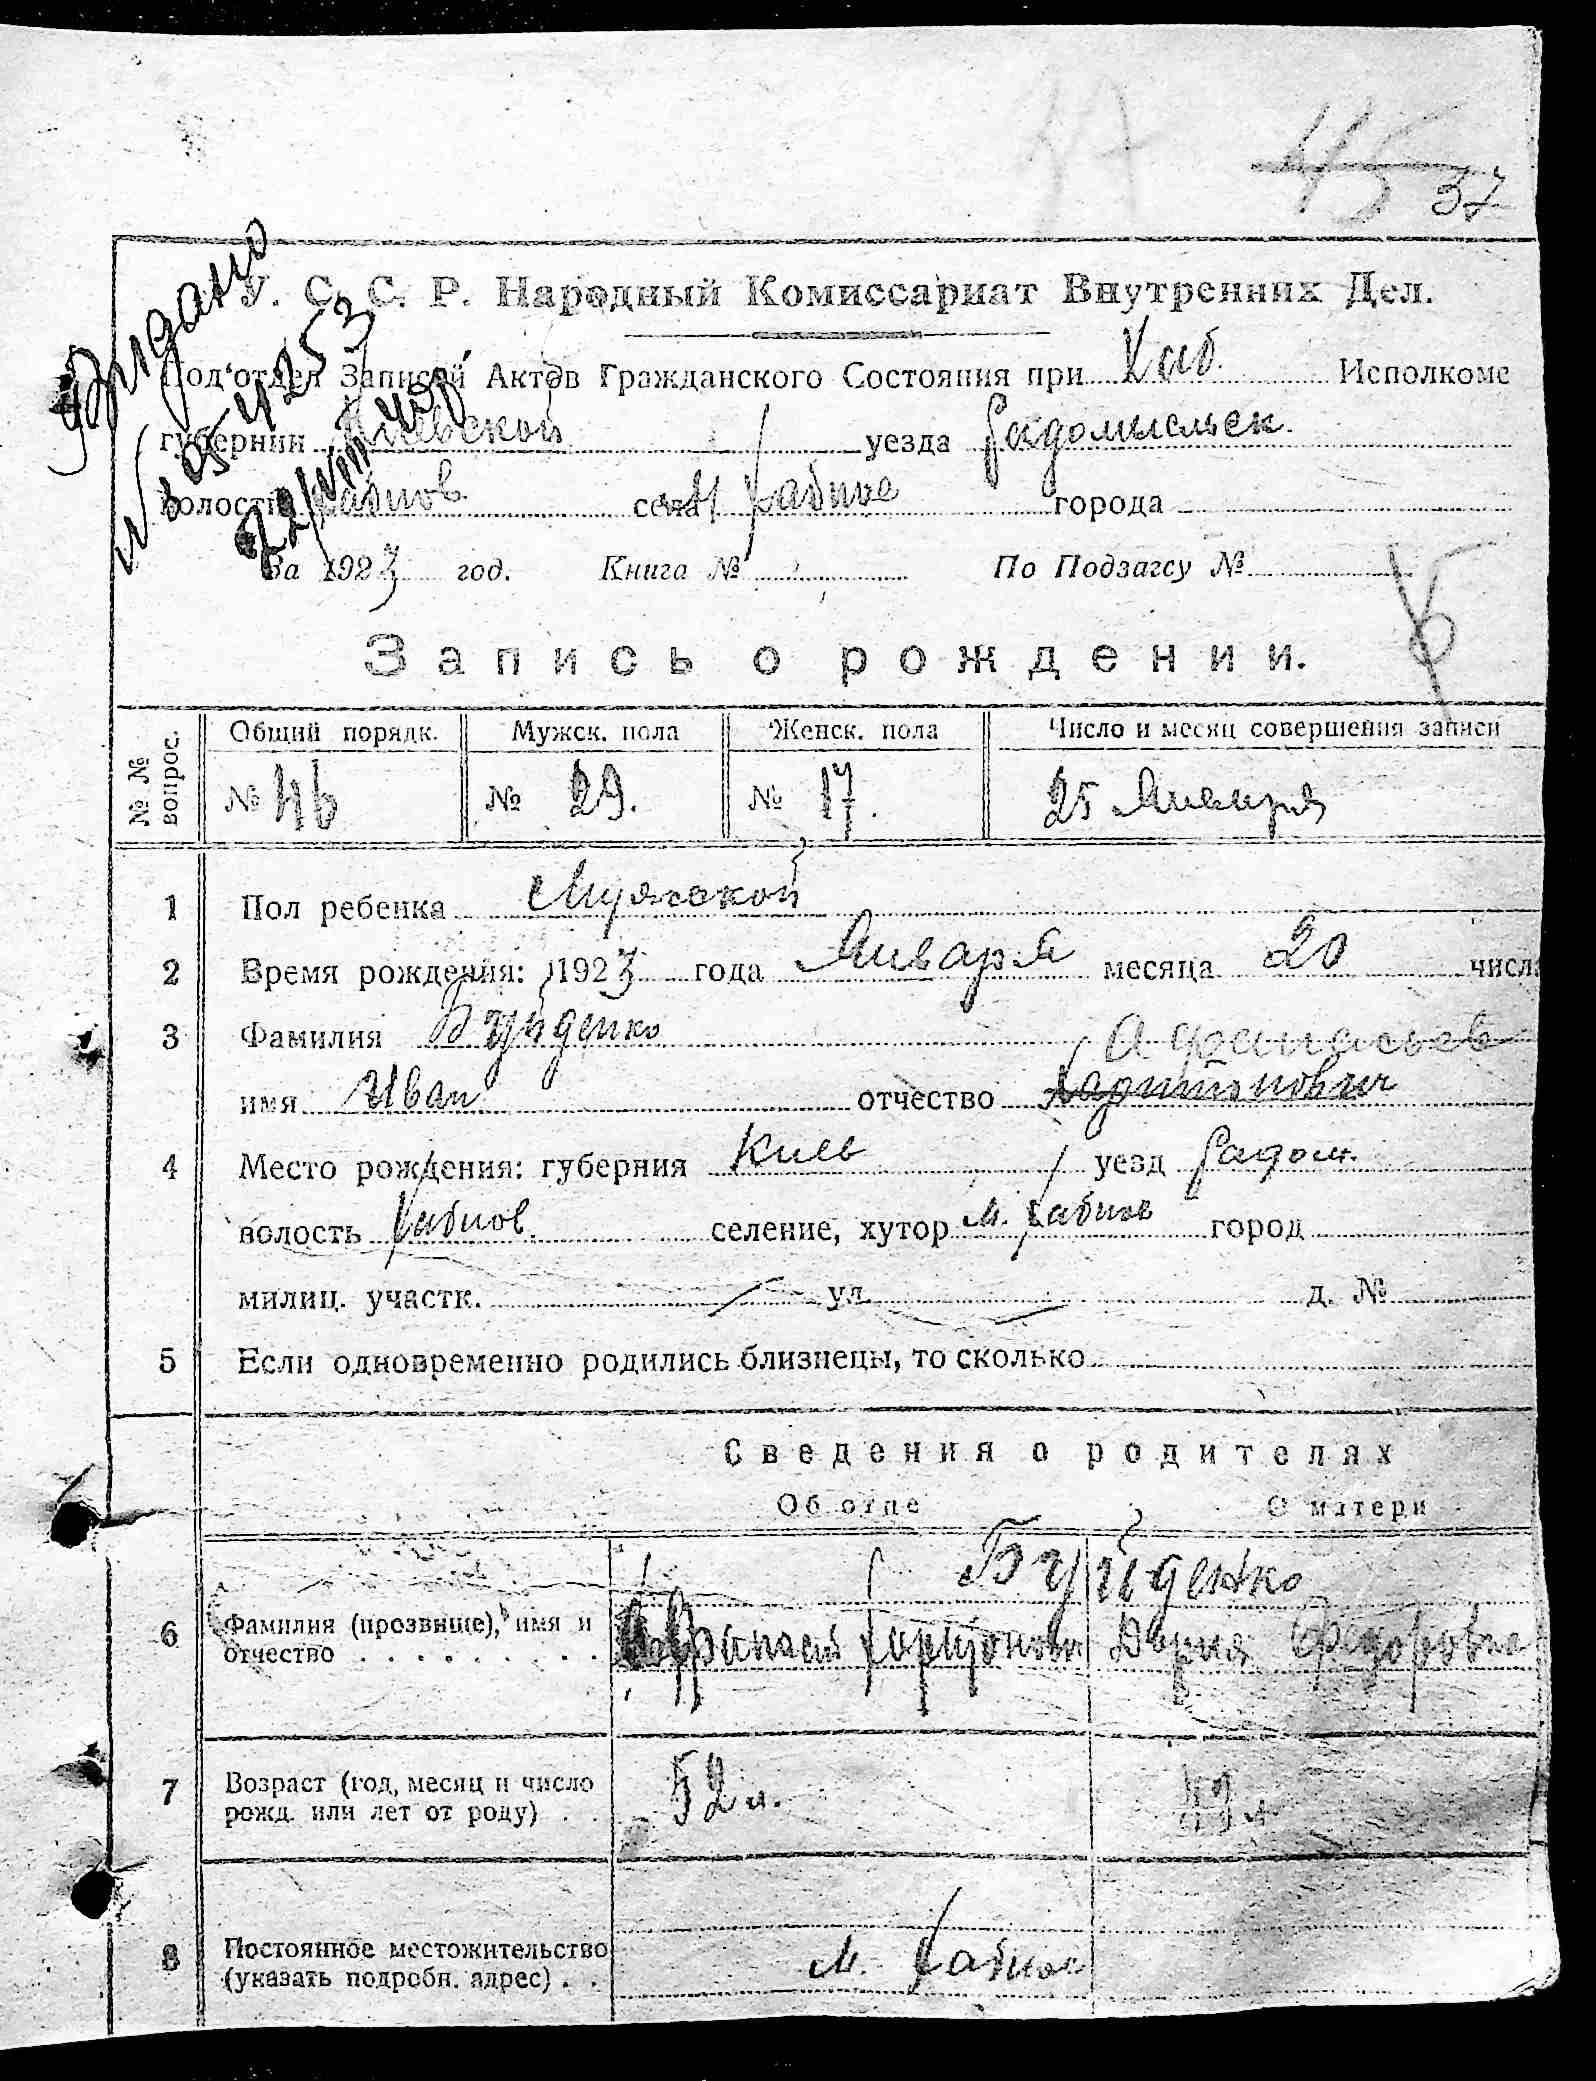 45
37
Видано
У. С. С. Р. Народный Комиссариат Внутренних Дел.
Под'отдел Записей Актов Гражданского Состояния при Хаб. Исполкоме
губернии Киевской уезда Радомысльск.
волости Хабнов. села М Хабное города
За 1923 год. Книга № По Подзагсу №
Запись о рождении.
№ № вопрос. Общий порядк. Мужск. пола Женск. пола Число и месяц совершения записи
№ 46 № 29. № 17. 25 Января
1 Пол ребенка Мужской
2 Время рождения: 1923 года Января месяца 20 числа
3 Фамилия Буйденко Афанасьев
имя Иван отчество Харитонович
4 Место рождения: губерния Киев уезд Радом.
волость Хабнов. селение, хутор м. Хабнов город
милиц. участк. ул. д. №
5 Если одновременно родились близнецы, то сколько
Сведения о родителях
Об отце О матери
Буйденко
6 Фамилия (прозвище), имя и
отчество Афанасий Харитонови Дария Федоровна
7 Возраст (год, месяц и число
рожд. или лет от роду) 52 л. 42 л
8 Постоянное местожительство
(указать подробн. адрес) м. Хабное